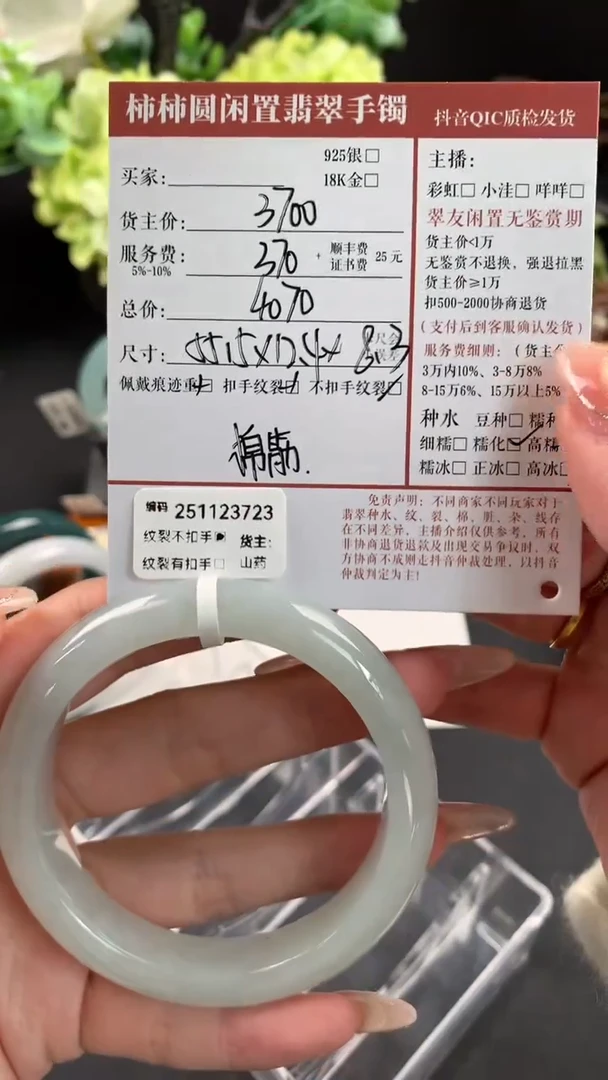 柿柿圆闲置翡翠手镯
抖音QIC质检发货
925银□
买家:
18K金□
货主价: 3700
服务费: 370 + 顺丰费 证书费 25元
5%-10%
总价: 4070
尺寸: 55.5×12.4×8.3
佩戴痕迹重□ 扣手纹裂□ 不扣手纹裂□
棉
主播:
彩虹□ 小洼□ 咩咩□
翠友闲置无鉴赏期
货主价<1万
无鉴赏不退换，强退拉黑
货主价≥1万
扣500-2000协商退货
(支付后到客服确认发货)
服务费细则:（货主
3万内10%、3-8万8%
8-15万6%、15万以上5%
种水 豆种□ 糯种
细糯□ 糯化☑ 高糯
糯冰□ 正冰□ 高冰□
编码 251123723
纹裂不扣手■ 货主:
纹裂有扣手□ 山药
免责声明：不同商家不同玩家对于
翡翠种水、纹、裂、棉、脏、杂、线存
在不同差异，主播介绍仅供参考，所有
非协商退货退款及出现交易争议时，双
方协商不成则走抖音仲裁处理，以抖音
仲裁判定为主!